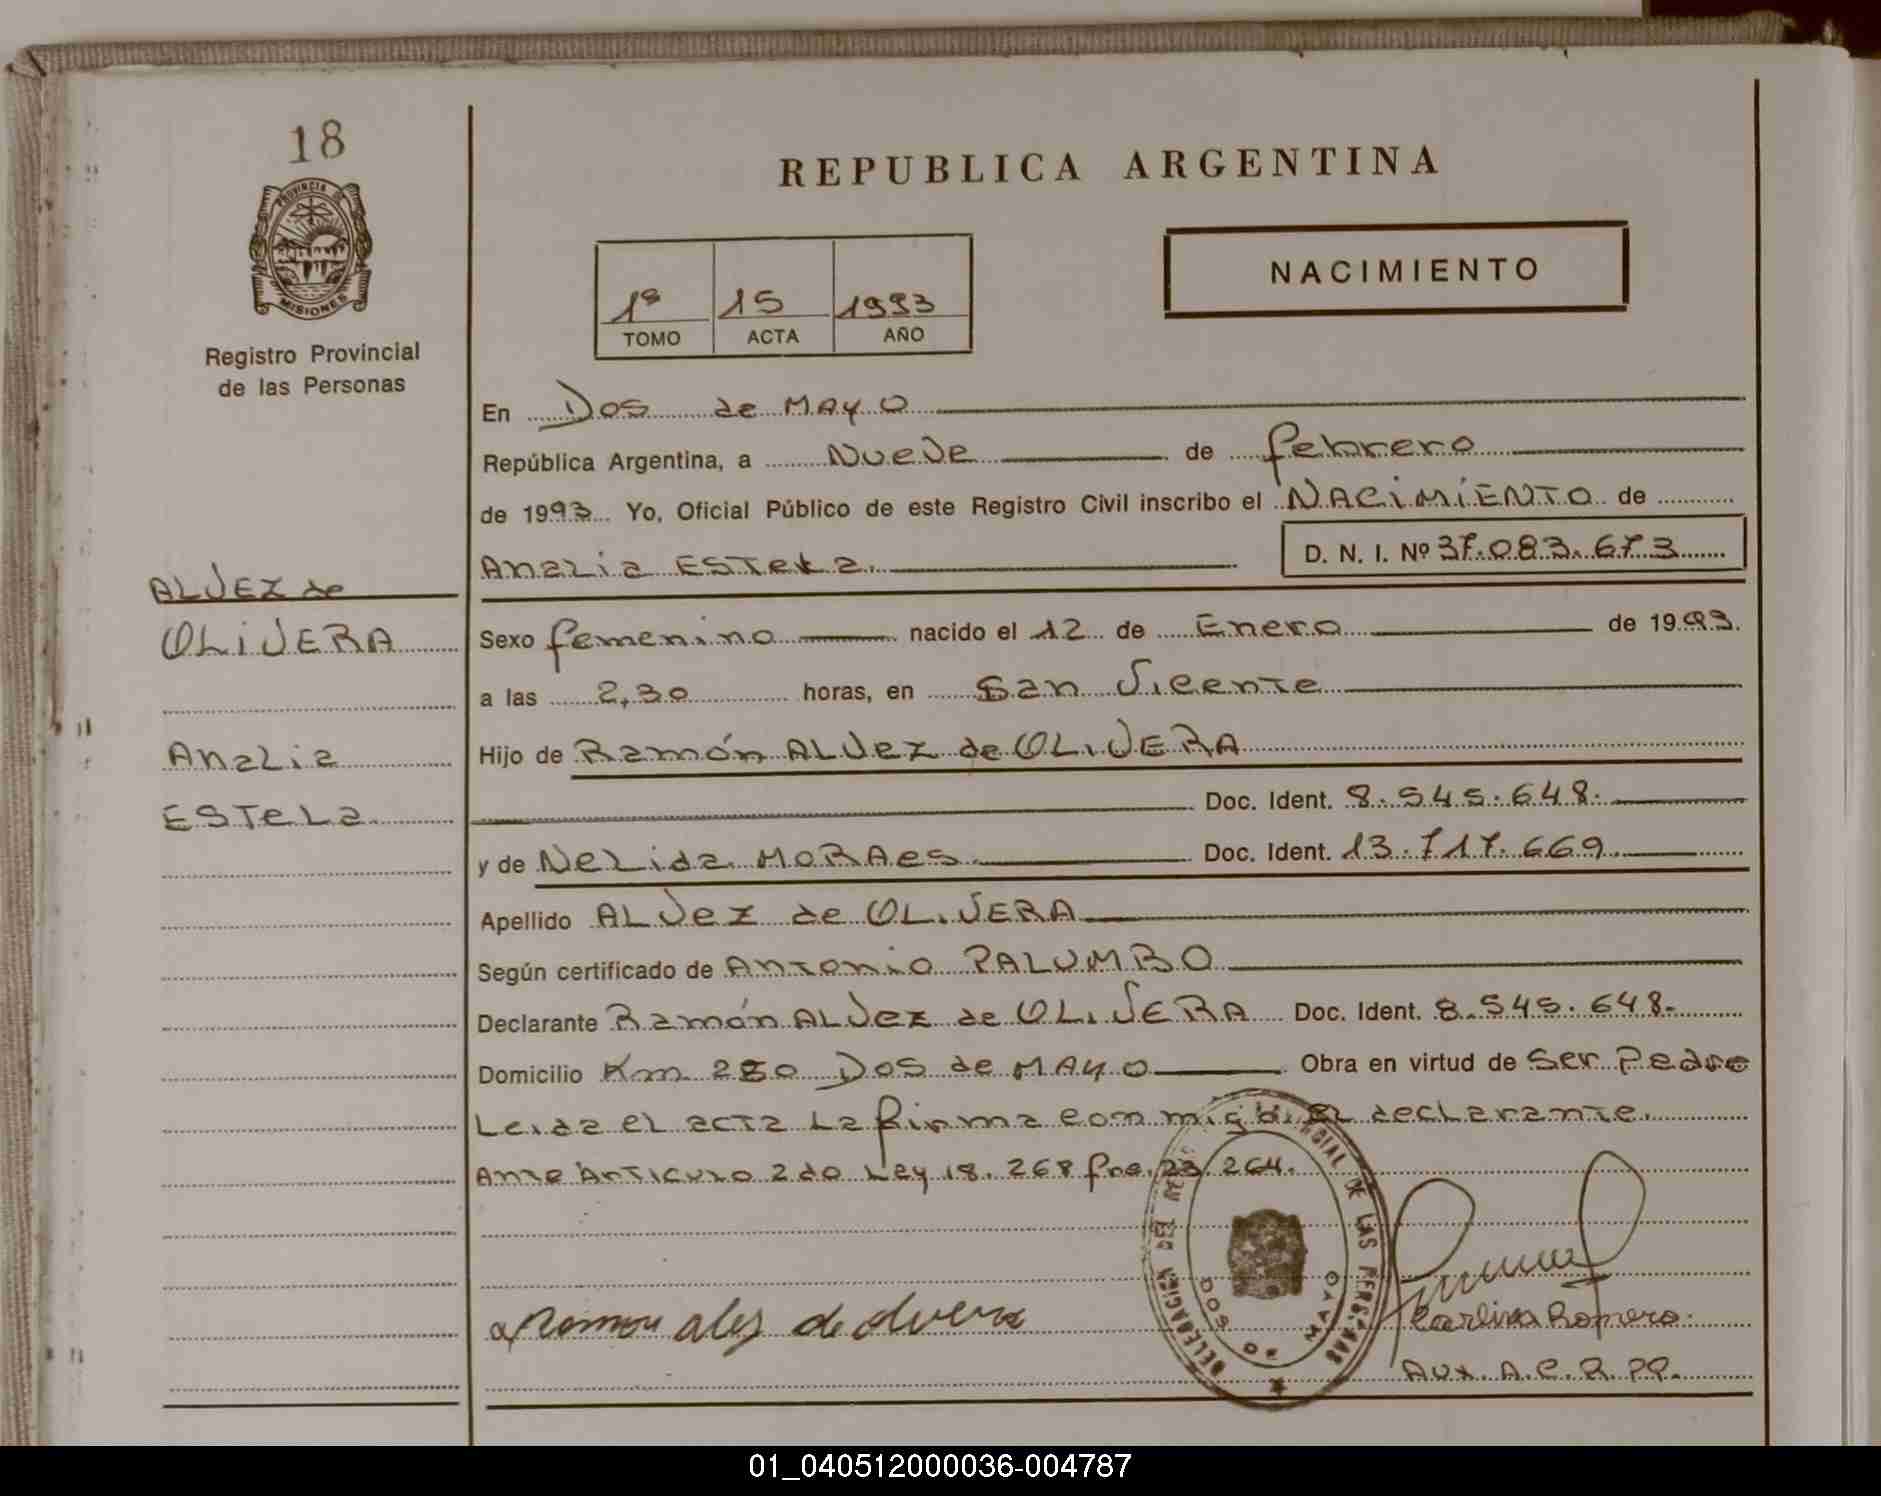 18
PROVINCIA DE
MISIONES
Registro Provincial
de las Personas
ALVEZ de
OLIVERA
Analia
ESTELA
REPUBLICA ARGENTINA
1º 15 1993
TOMO ACTA AÑO
NACIMIENTO
En Dos de MAYO
República Argentina, a Nueve de febrero
de 1993 Yo, Oficial Público de este Registro Civil inscribo el NACIMIENTO de
Analia ESTELA. D. N. I. Nº 37.083.673
Sexo femenino nacido el 12 de Enero de 1993.
a las 2,30 horas, en San Vicente
Hijo de Ramón ALVEZ de OLIVERA
Doc. Ident. 8.545.648.
y de Nelida MORAES Doc. Ident. 13.717.669
Apellido ALVEZ de OLIVERA
Según certificado de Antonio PALUMBO
Declarante Ramón ALVEZ de OLIVERA Doc. Ident. 8.545.648.
Domicilio Km 250 Dos de MAYO Obra en virtud de Ser Padre
Leida el acta La firma conmigo El declarante.
Ante Articulo 2do Ley 18.268 fne. 23.264.
DELEGACION DEL PROVINCIAL DE LAS PERSONAS
DOS DE MAYO
Ramon alez de olivera
Carlina Romero.
Aux. A.C.R.PP.
01_040512000036-004787